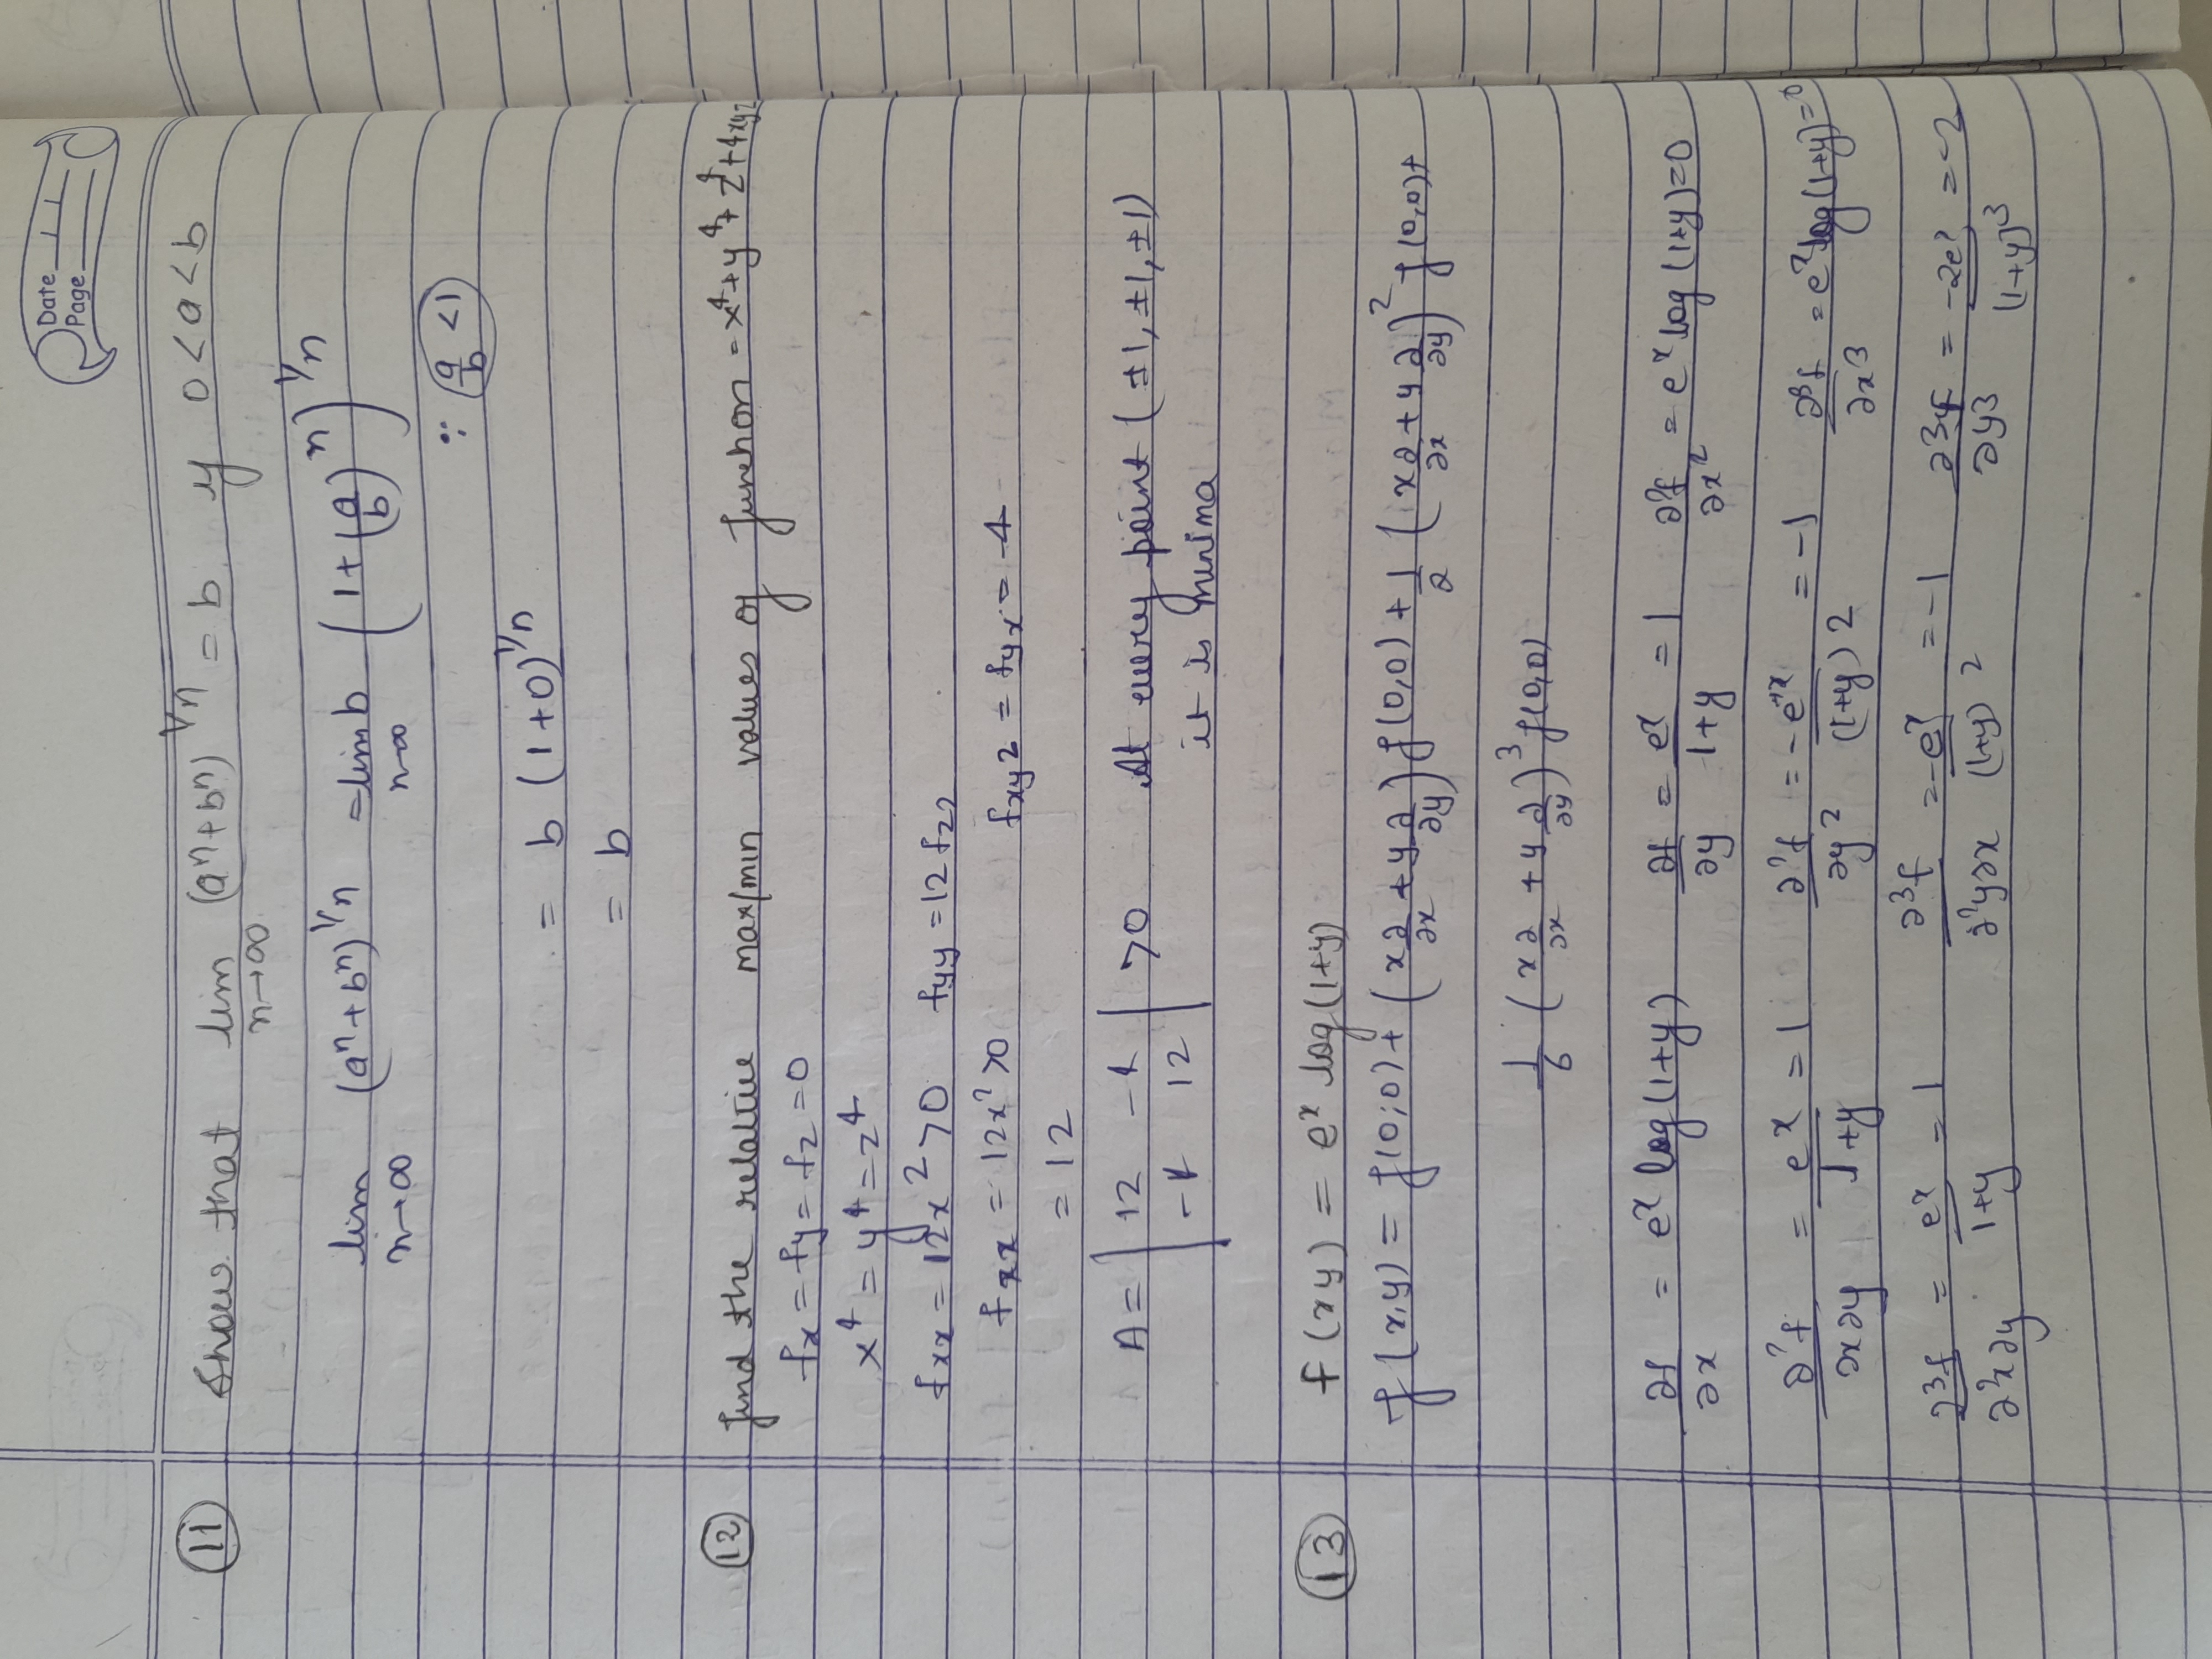 Date
Page
(11) Show that lim n→∞ (aⁿ+bⁿ)^1/n = b if 0<a<b
lim n→∞ (aⁿ+bⁿ)^1/n = lim n→∞ b (1+(a/b)ⁿ)^1/n
∵ (a/b <1)
= b (1+0)^1/n
= b
(12) find the relative max/min values of function = x⁴+y⁴+z⁴+4xyz
fx = fy = fz = 0
x⁴ = y⁴ = z⁴
fxx = 12x² >0 fyy = 12 fzz
fxx = 12x² >0 fxyz = fyx = -4
= 12
A = | 12 -4 | >0 At every point (±1, ±1, ±1)
| -4 12 | it is minima
(13) f(xy) = eˣ log(1+y)
f(x,y) = f(0,0) + (x ∂/∂x + y ∂/∂y) f(0,0) + 1/2 (x ∂/∂x + y ∂/∂y)² f(0,0) +
1/6 (x ∂/∂x + y ∂/∂y)³ f(0,0)
∂f/∂x = eˣ log(1+y) ∂f/∂y = eˣ/1+y = 1 ∂²f/∂x² = eˣ log(1+y)=0
∂²f/∂x∂y = eˣ/1+y = 1 ∂²f/∂y² = -eˣ/(1+y)² = -1 ∂³f/∂x³ = eˣ log(1+y)=0
∂³f/∂²x∂y = eˣ/1+y = 1 ∂³f/∂²y∂x = -eˣ/(1+y)² = -1 ∂³f/∂y³ = -2eˣ/(1+y)³ = -2